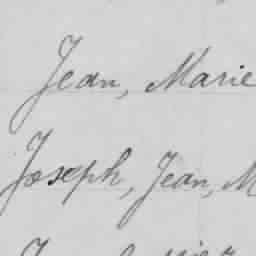 Jean, Marie
Joseph, Jean, M